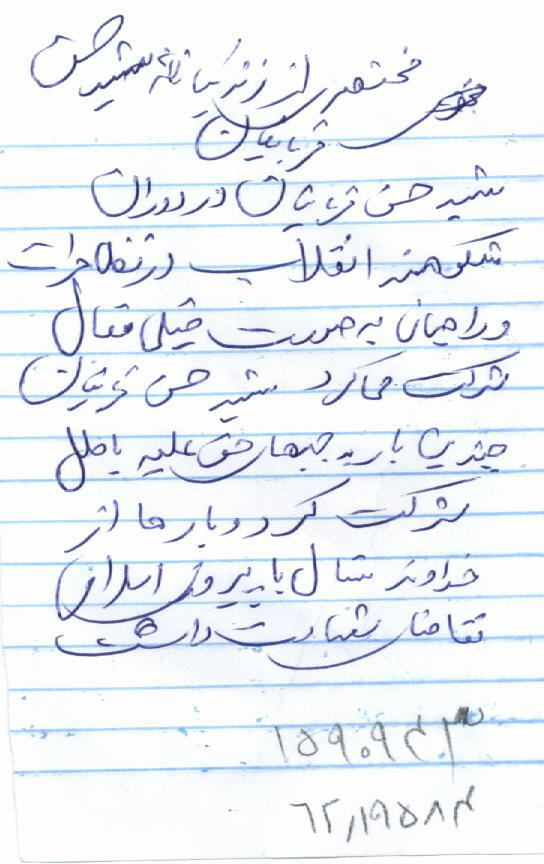 مختصری از زندگینامه شهید حسن
قربانیان
شهید حسن قربانیان در دوران
شکوهمند انقلاب در تظاهرات
و راهپیمایی به صورت خیلی فعال
شرکت می کرد شهید حسن قربانیان
چندین بار به جبهای حق علیه باطل
شرکت کرد و بارها از
خداوند متعال با پیروزی اسلام
تقاضای شهادت داشت
۱۵۹۰۹۴۳
۶۲٫۱۹۵۸۴